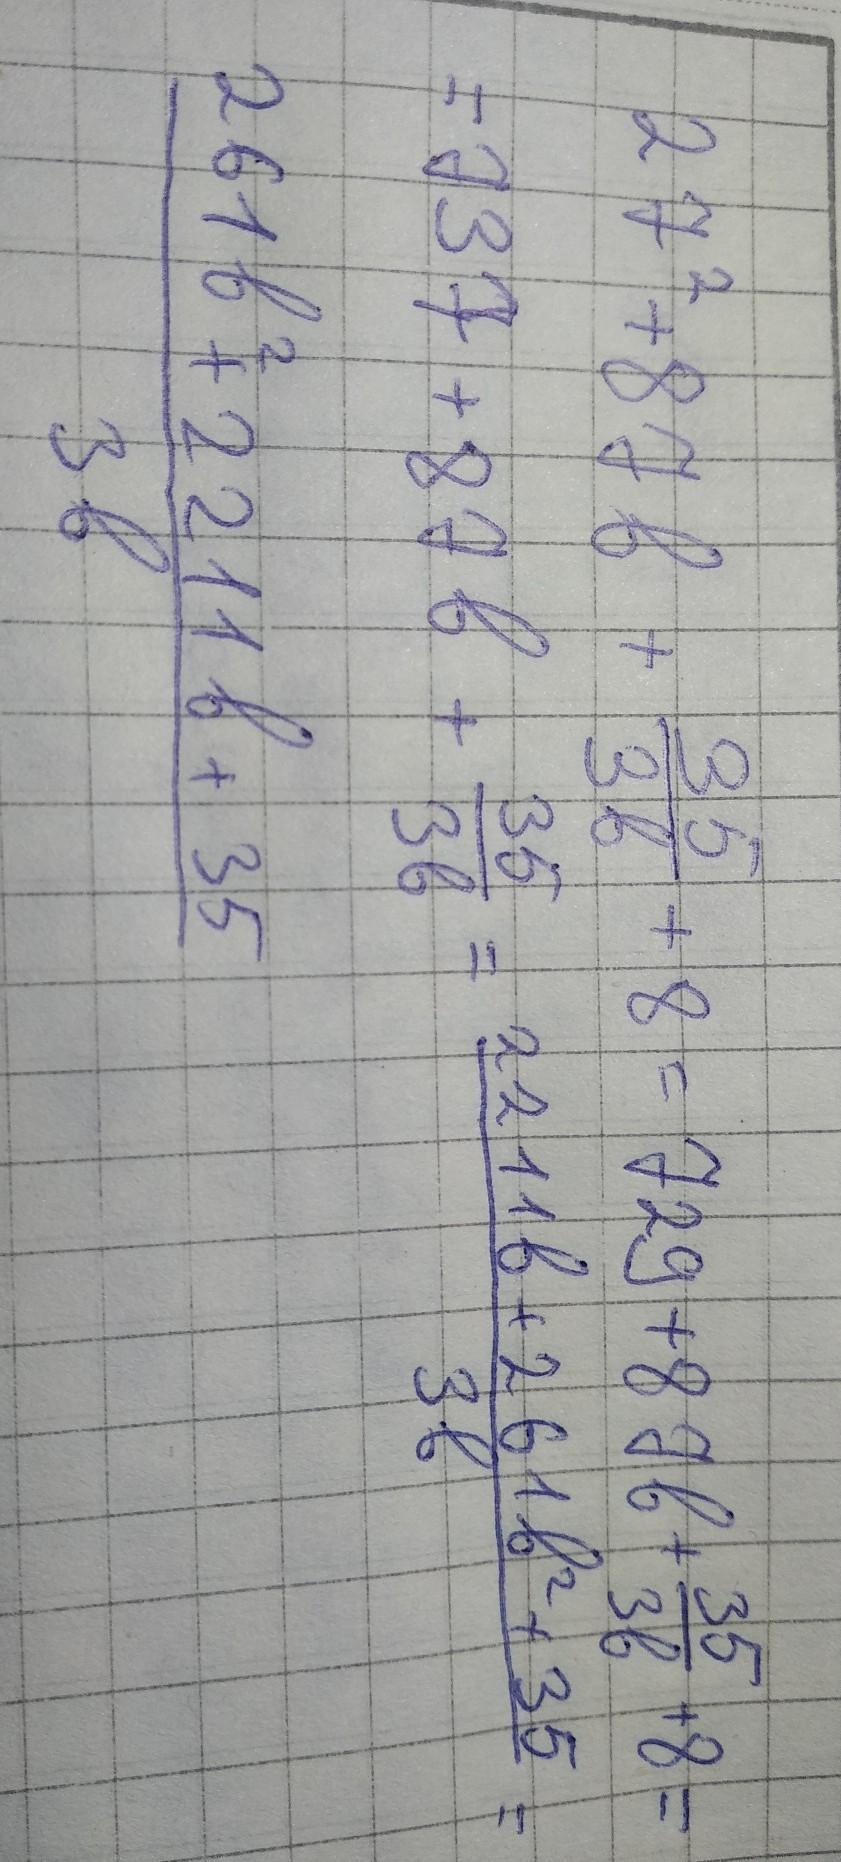 27² + 87b + 35/3b + 8 = 729 + 87b + 35/3b + 8 =
= 737 + 87b + 35/3b = 2211b + 261b² + 35/3b =
261b² + 2211b + 35/3b